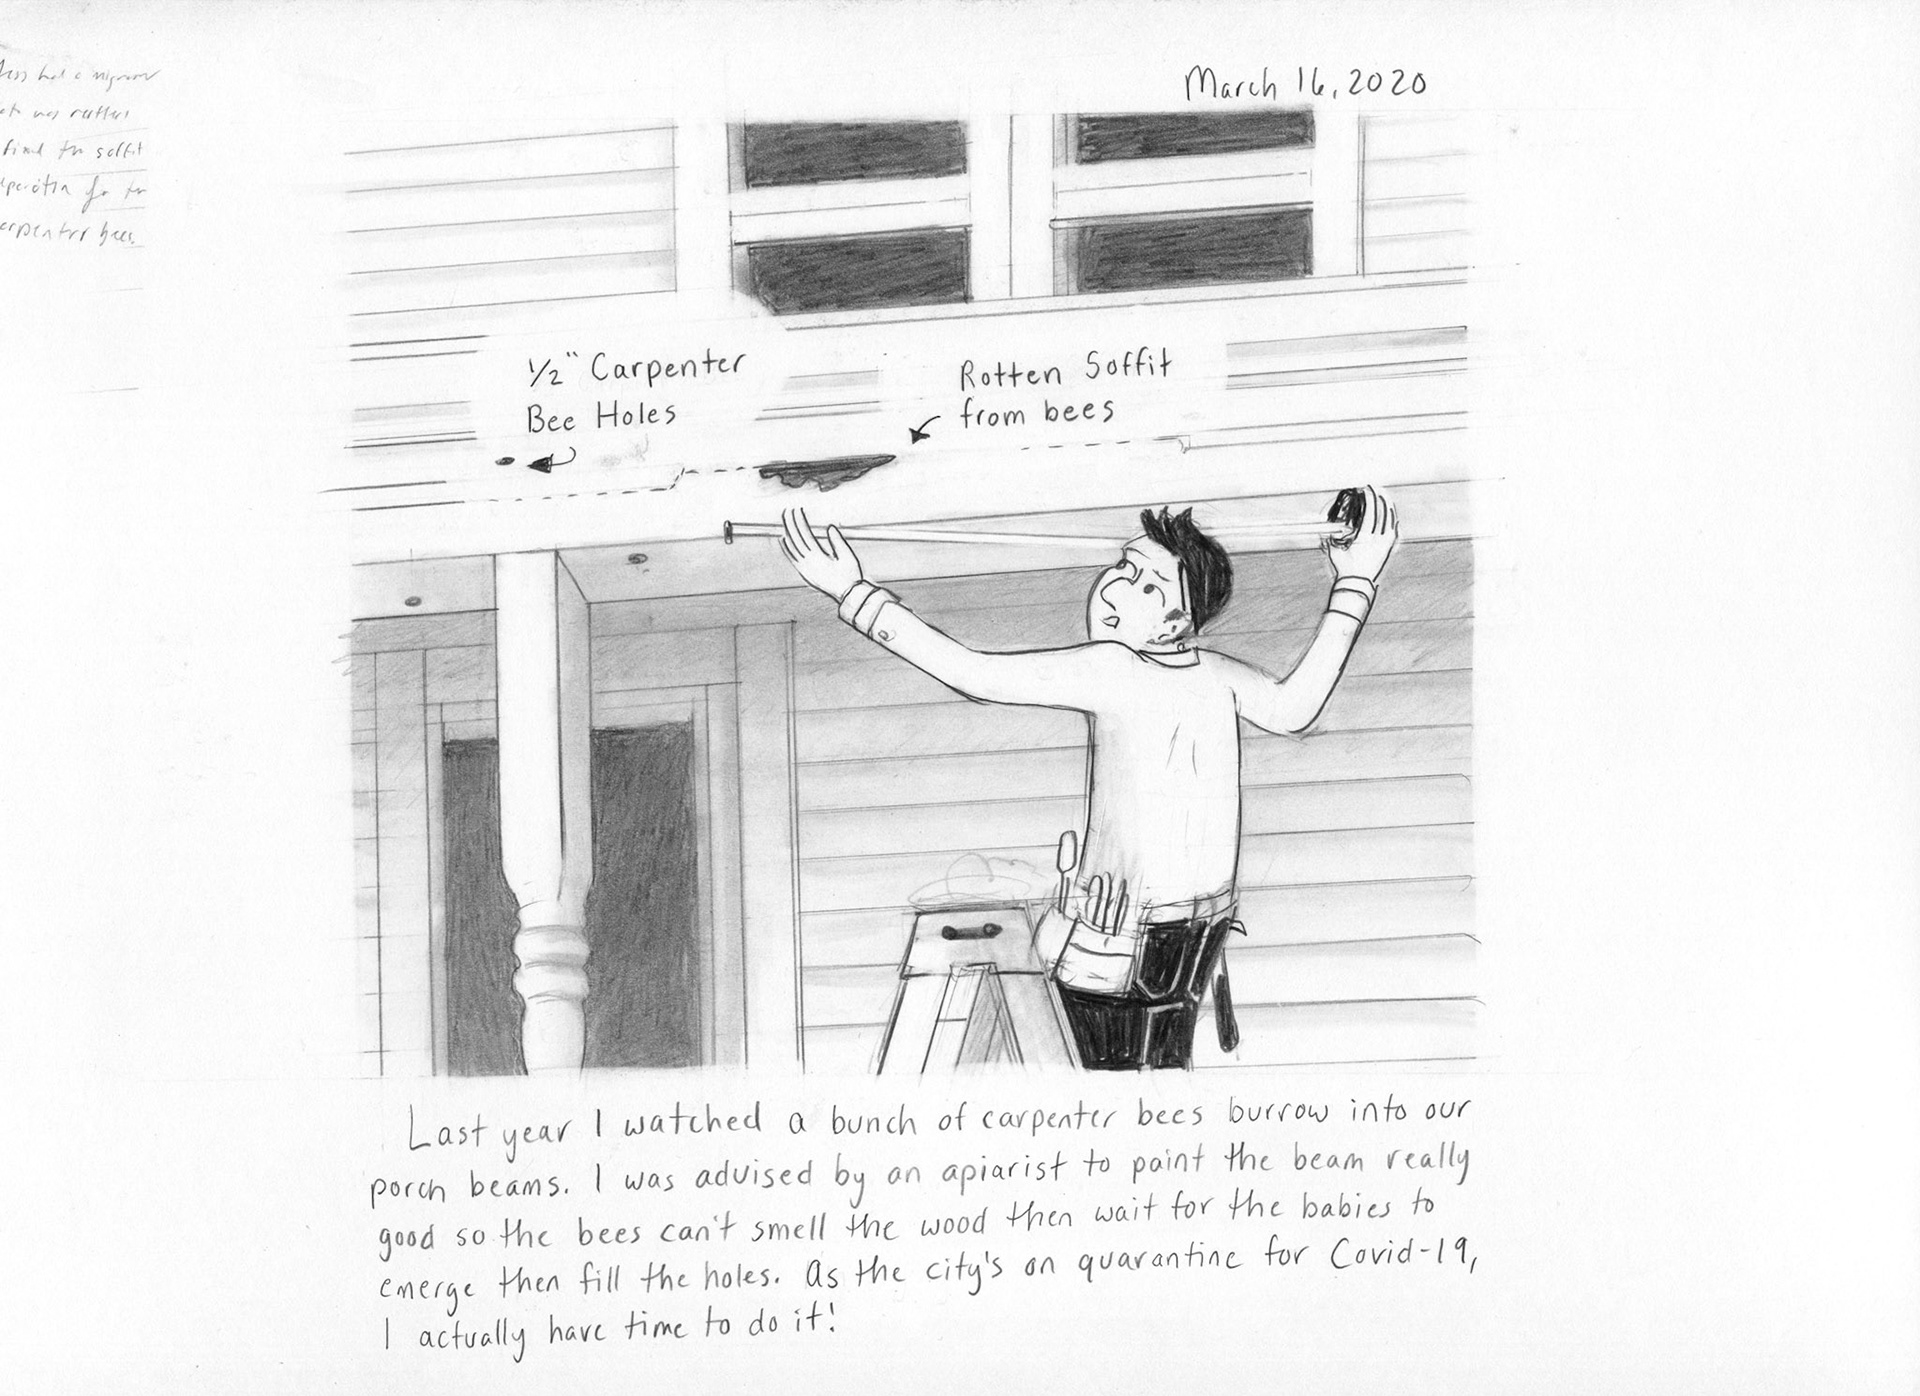 March 16, 2020
had a
was
soffit
for
carpenter bees.
1/2" Carpenter
Bee Holes
Rotten Soffit
from bees
Last year I watched a bunch of carpenter bees burrow into our
porch beams. I was advised by an apiarist to paint the beam really
good so the bees can't smell the wood then wait for the babies to
emerge then fill the holes. As the city's on quarantine for Covid-19,
I actually have time to do it!